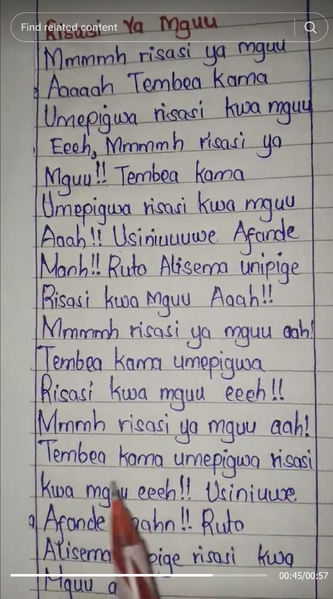 Find related content
Risasi Ya Mguu
Mmmmh risasi ya mguu
Aaaaah Tembea Kama
Umepigwa risasi kwa mguu
Eeeh, Mmmmh risasi ya
Mguu!! Tembea kama
Umepigwa risasi kwa mguu
Aaah!! Usiniuuuwe Afande
Manh!! Ruto Alisema unipige
Risasi kwa Mguu Aaah!!
Mmmmh risasi ya mguu aah!
Tembea kama umepigwa
Risasi kwa mguu eeeh!!
Mmmh risasi ya mguu aah!
Tembea kama umepigwa risasi
kwa mguu eeeh!! Usiniuwe
Afande Ruto
Alisema risasi kwa
Mguu
00:45/00:57